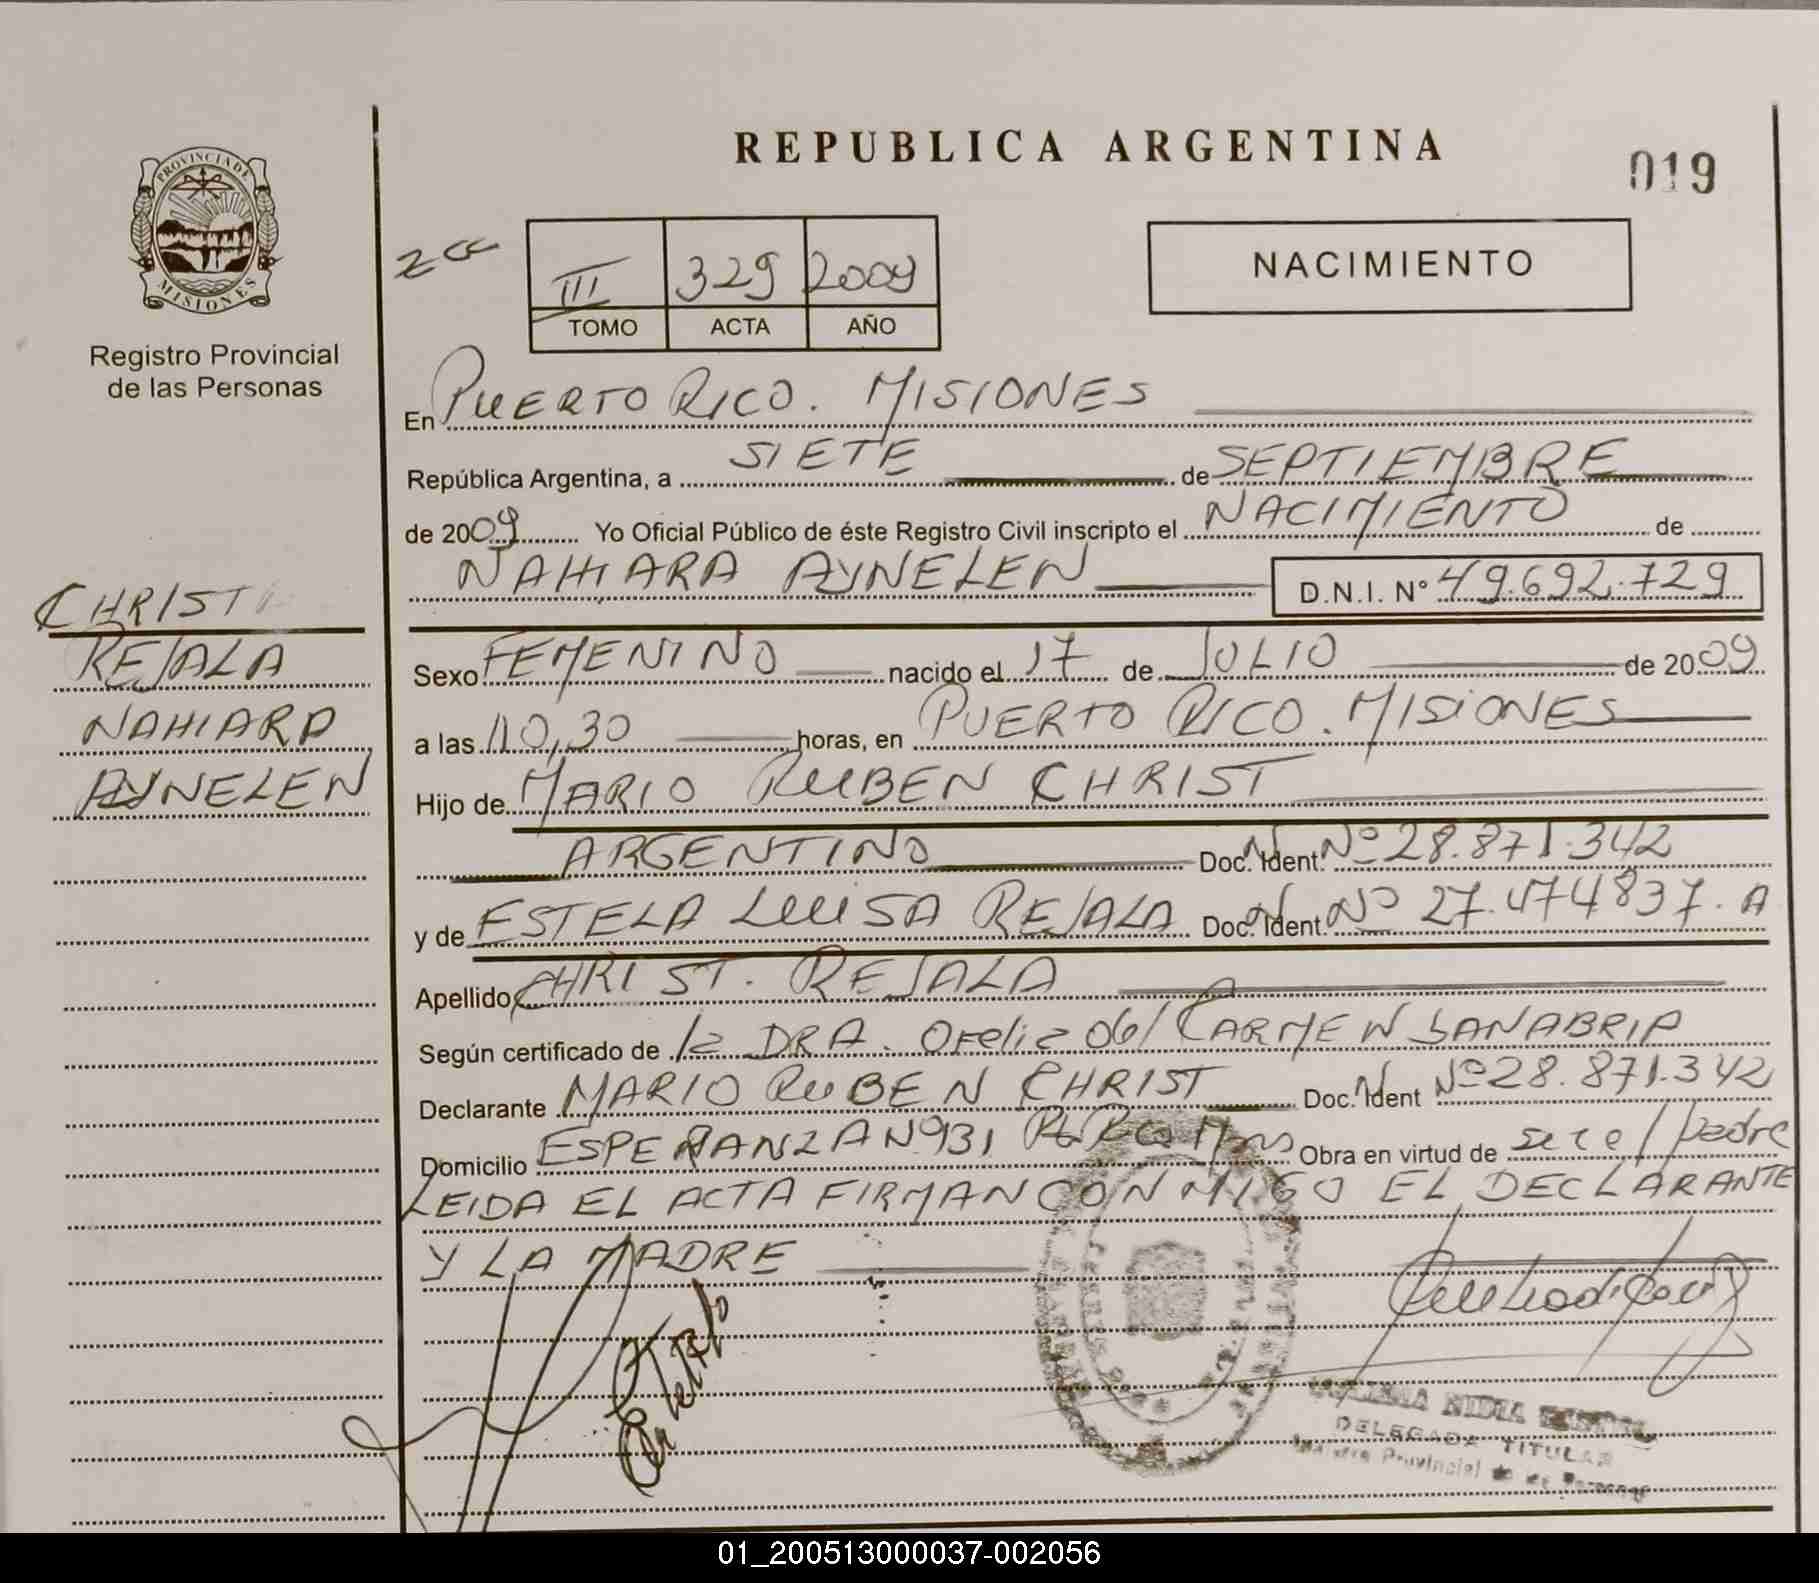 REPUBLICA ARGENTINA
019
PROVINCIA DE
MISIONES
Registro Provincial
de las Personas
NACIMIENTO
III 329 2009
TOMO ACTA AÑO
En PUERTO RICO. MISIONES
República Argentina, a SIETE de SEPTIEMBRE
de 2009 Yo Oficial Público de éste Registro Civil inscripto el NACIMIENTO de
NAHIARA AYNELEN D.N.I. Nº 49.692.729
CHRIST
REJALA
NAHIARA
AYNELEN
Sexo FEMENINO nacido el 17 de JULIO de 2009
a las 10,30 horas, en PUERTO RICO. MISIONES
Hijo de MARIO RUBEN CHRIST
ARGENTINO Doc. Ident. Nº 28.871.342
y de ESTELA LUISA REJALA Doc. Ident. Nº 27.474837. A
Apellido CHRIST. REJALA
Según certificado de la DRA. Ofelia del CARMEN SANABRIA
Declarante MARIO RUBEN CHRIST Doc. Ident Nº 28.871.342
Domicilio ESPERANZA Nº 931 Pto Rico Mnes Obra en virtud de ser el padre
LEIDA EL ACTA FIRMAN CONMIGO EL DECLARANTE
Y LA MADRE
NIDIA
DELEGADA TITULAR
Registro Provincial de las Personas
01_200513000037-002056